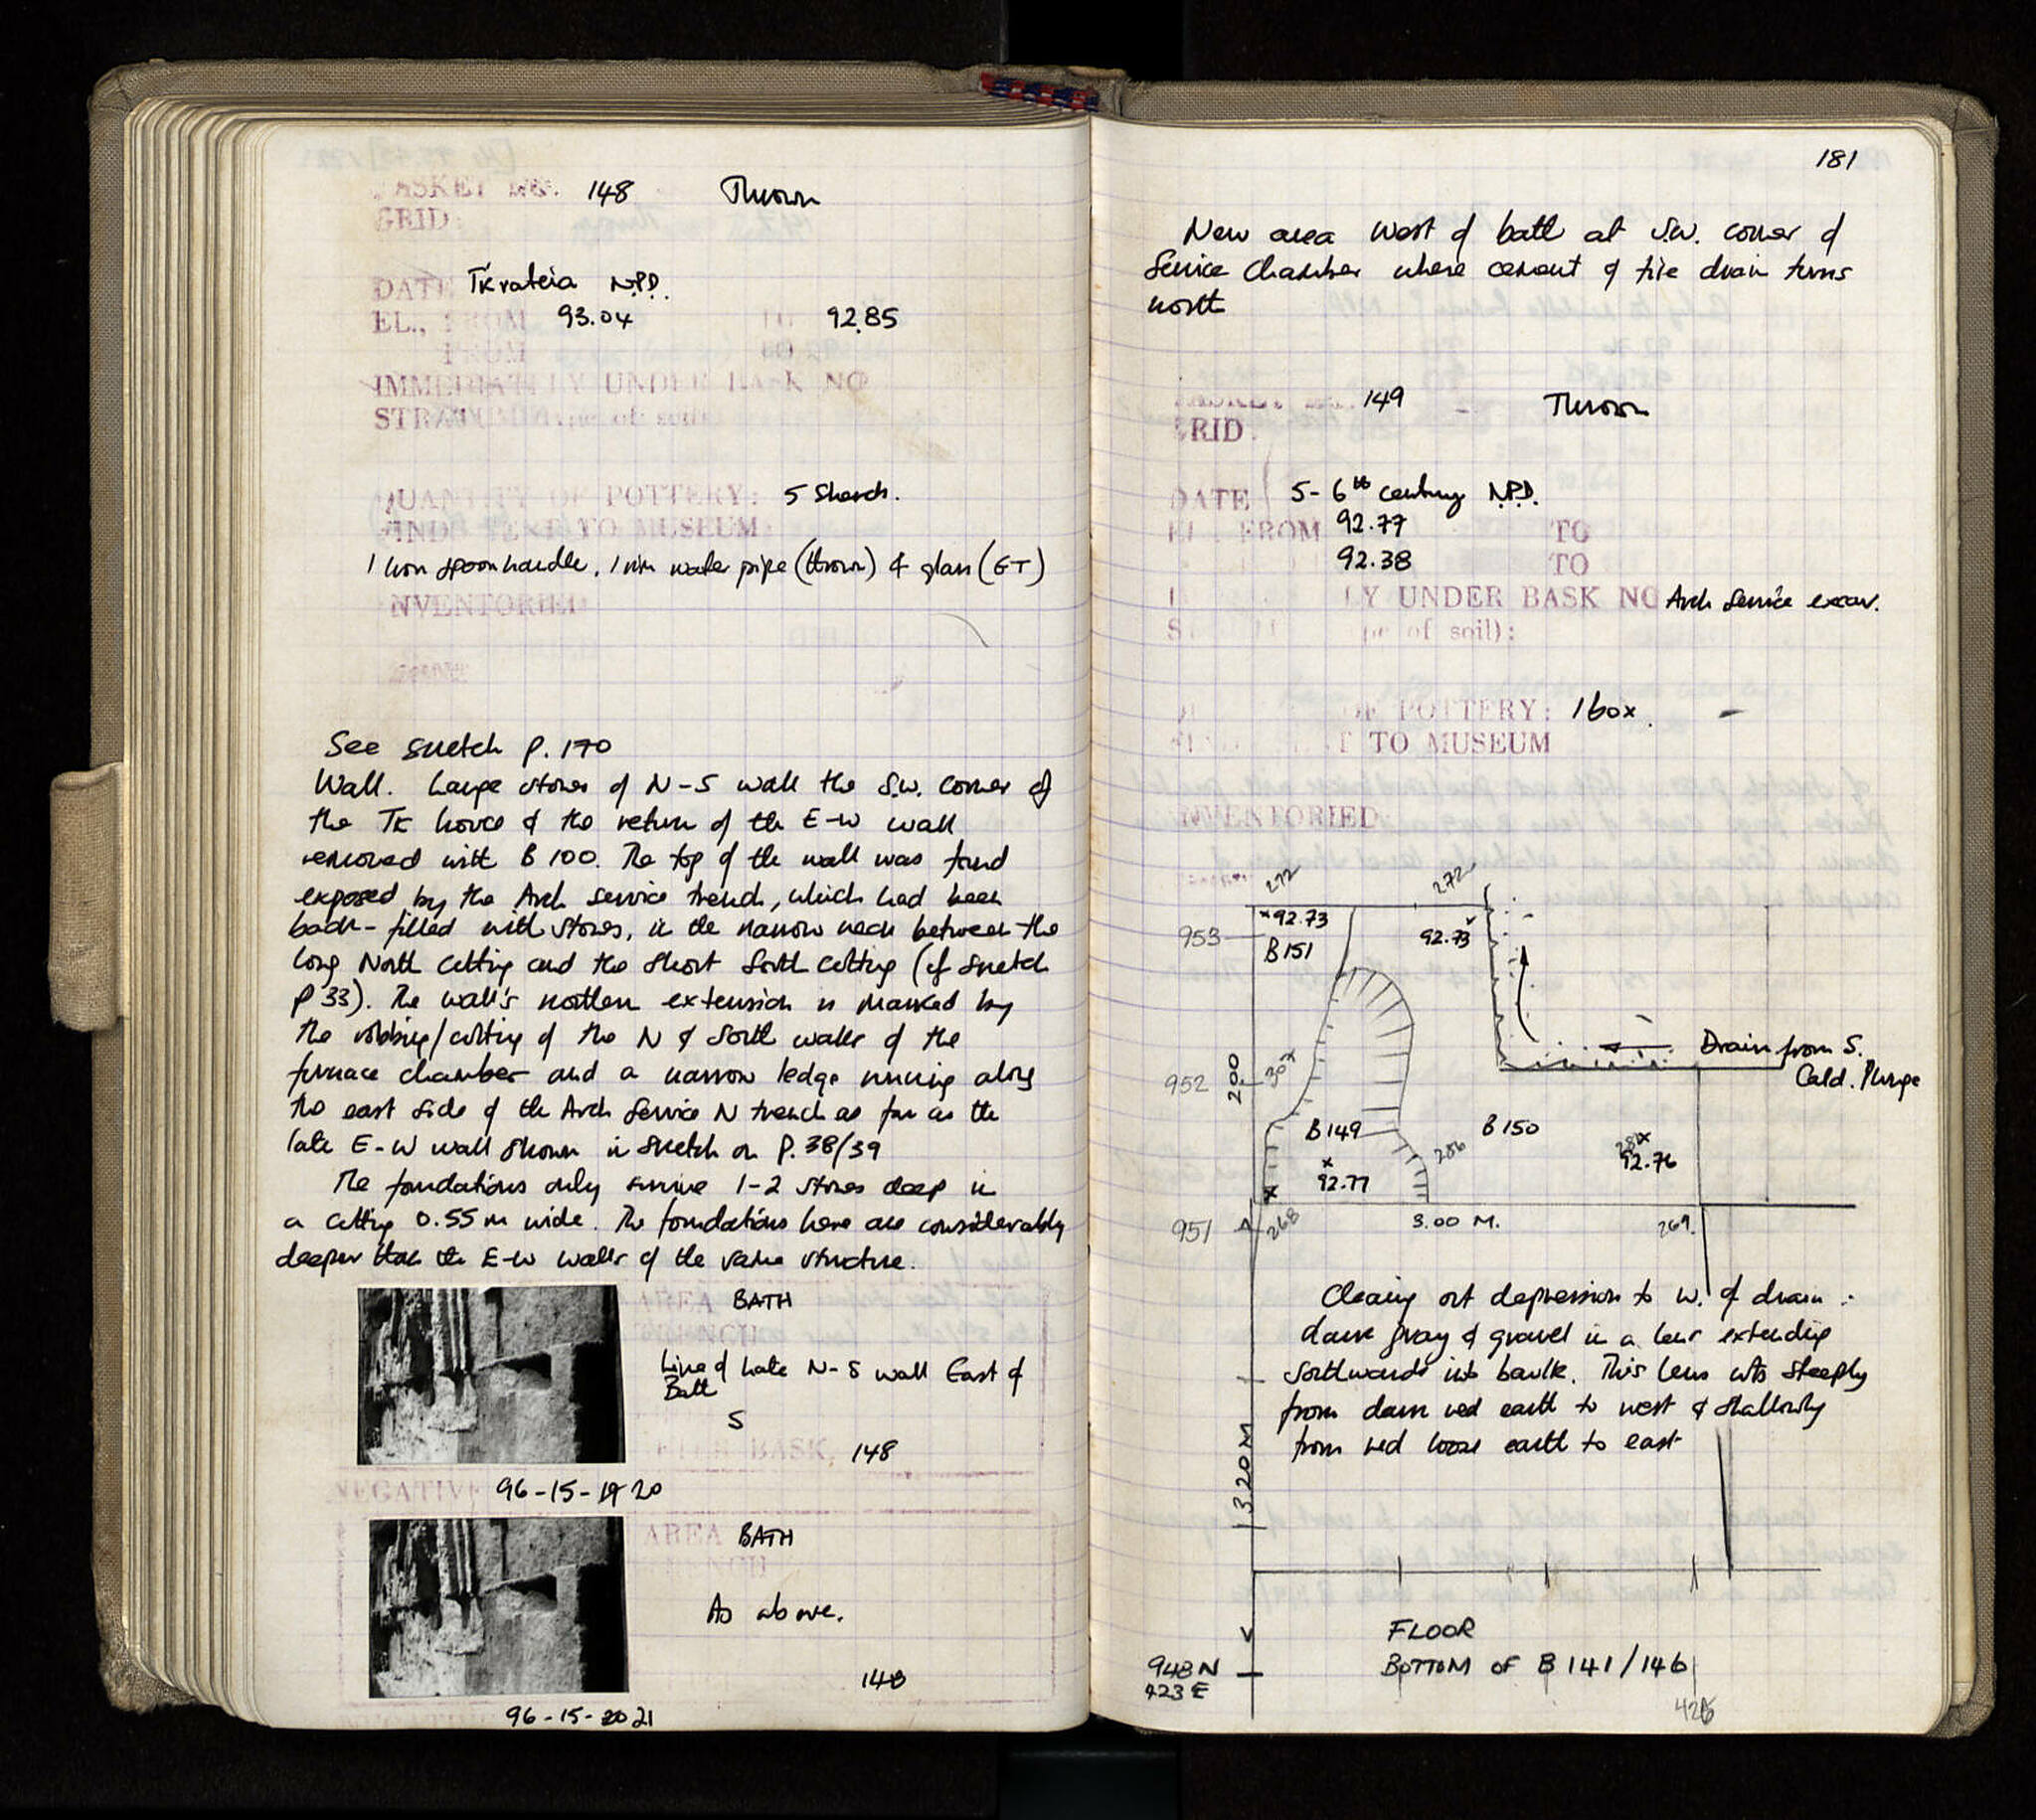 BASKET NO. 148 Thrown
GRID:
DATE Tkrateia N.P.D.
EL., FROM 93.04 TO 92.85
FROM
IMMEDIATELY UNDER BASK NO
STRATUM (type of soil)
QUANTITY OF POTTERY: 5 Sherds.
FINDS SENT TO MUSEUM:
1 iron spoon handle, 1 rim water pipe (thrown) & glass (GT)
INVENTORIED
See sketch P. 170
Wall. Large stones of N-S wall the S.W. corner of
the TK house & the return of the E-W wall
removed with B 100. The top of the wall was found
exposed by the Arch Service trench, which had been
back-filled with stones, in the narrow neck between the
long North cutting and the short South cutting (cf sketch
P 33). The wall's northern extension is marked by
the robbing/cutting of the N & South walls of the
furnace chamber and a narrow ledge running along
the east side of the Arch Service N trench as far as the
late E-W wall shown in sketch on P. 38/39
The foundations only survive 1-2 stones deep in
a cutting 0.55 m wide. The foundations here are considerably
deeper than the E-W walls of the same structure.
AREA BATH
TRENCH
Line of Late N-S wall East of
Bath
S
AFTER BASK. 148
NEGATIVE 96-15-19 20
AREA BATH
TRENCH
As above.
148
96-15-20 21
181
New area West of bath at S.W. corner of
Service Chamber where cement & tile drain turns
north
BASKET NO. 149 Thrown
GRID.
DATE 5-6th century N.P.D.
EL. FROM 92.77 TO
92.38 TO
IMMEDIATELY UNDER BASK NO Arch Service excav.
STRATUM (type of soil):
QUANTITY OF POTTERY: 1 box.
FINDS SENT TO MUSEUM
INVENTORIED
272 272
953 92.73 92.73
B151
Drain from S.
Cald. Plunge
952 2.00 30
B149 B150
286 281
92.77 92.76
951 268 3.00 M. 269.
Clearing out depression to W. of drain :
dark gray & gravel in a lens extending
southwards into baulk. This lens cuts steeply
from dark red earth to west & shallowly
from red loose earth to east
3.20 M
FLOOR
948 N BOTTOM OF B 141/146
423 E
426